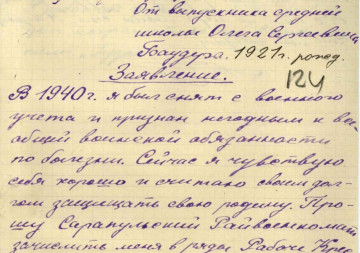 От выпускника средней
школы Олега Сергеевича
1921 г. рожд.
124
Заявление.
В 1940 г. я был снят с военного
учета и признан негодным к все
общей воинской обязанности
по болезни. Сейчас я чувствую
себя хорошо и считаю своим дол-
гом защищать свою родину. Про-
шу Сарапульский Райвоенкомат
зачислить меня в ряды Рабоче Крес